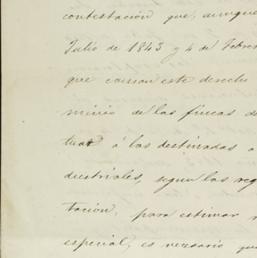 contestación que, aunque
Julio de 1843 y 4 de Febrer
que causan este derecho
minio de las fincas de
tuar á las destinadas a
dustriales, segun las reg
tación, para estimar
especial, es nesario que